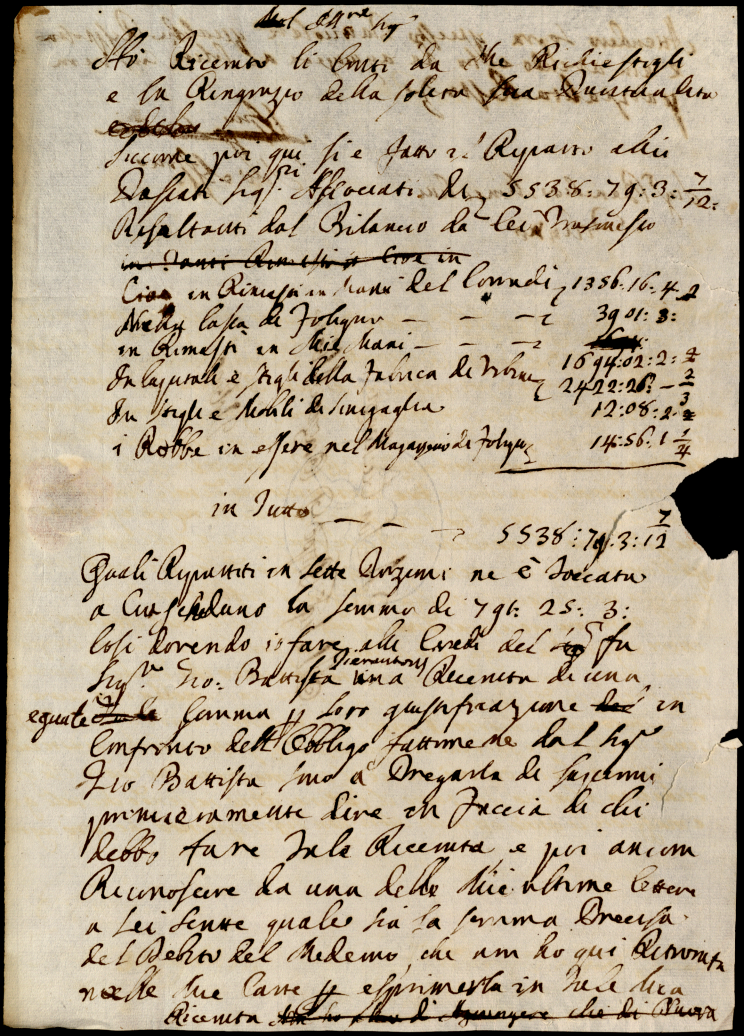 Hò Riceuuto li Conti da Me Richiestigli
e La Ringrazio della solita Sua Puntualità
Siccome poi qui si è fatto il Riparto alli
Sig.ri Associati di 5538:79:3: 7/12:
Resultanti dal Bilancio da Lei Trasmesso
Cioè in Rimasti in Mani del Corradi 1356:16:4
Nella Cassa di Foligno — — — 3901:3:
in Rimasti in Mie Mani — — 1694:02:2:
In Capitali e Stigli della Fabrica di 2422:26:—
In Stigli e Mobili di Sinigaglia 12:08:2
i Robbe in essere nel Magazeno di Foligno 14:56:1 1/4
in Tutto — — — 5538:79:3: 7/12
Quali Ripartiti in Sette Porzioni ne è Toccata
a Ciascheduno la somma di 791:25:3:
Così dovendo io fare alli Eredi del fu
Sig.r Gio: Battista una Riceuuta di una
eguale Somma p loro giustificazione in
Confronto dell'Obbligo fattomene dal Sig.r
Gio Battista sono a Pregarla di farmi
primieramente dire in Faccia di chi
debbo fare Tale Riceuuta, e poi ancora
Riconoscere da una delle Mie ultime lettere
a Lei Scritte quale sia la somma Precisa
del Debito del Medemo, che non ho qui Ritrovata
nelle Mie Carte p esprimerla in Tale Mia
Riceuuta